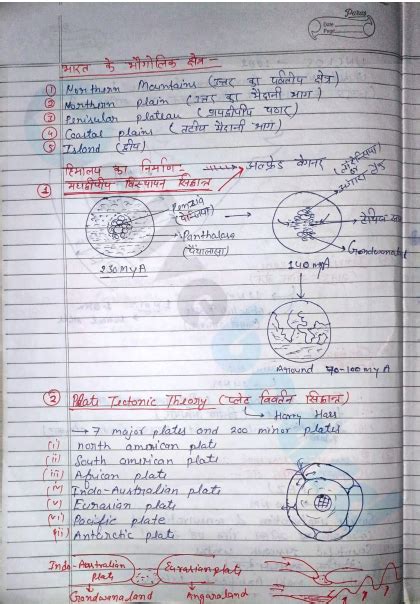 Paras
Date
Page
भारत के भौगोलिक क्षेत्र -
① Northern Mountains (उत्तर का पर्वतीय क्षेत्र)
② Northern plain (उत्तर का मैदानी भाग)
③ Penisular plateau (प्रायद्वीपीय पठार)
④ Coastal plains (तटीय मैदानी भाग)
⑤ Island (द्वीप)
हिमालय का निर्माण:-
① महाद्वीपीय विस्थापन सिद्धान्त → अल्फ्रेड वेगनर
Penzia
(पेन्जिया)
Panthalasa
(पैंथालासा)
230 MYA
अंगारा लैंड
टेथिस
Gondwanaland
140 MYA
Around 70-100 MYA
② Plate Tectonic Theory (प्लेट विवर्तन सिद्धान्त)
Harry Hess
→ 7 major plates and 200 minor plates
(i) north american plate
(ii) South american plate
(iii) African plate
(iv) Indo-Australian plate
(v) Eurasian plate
(vi) Pacific plate
(vii) Antarctic plate
Indo-Australian Plate
Eurasian plate
Gondwana land
Angaraland